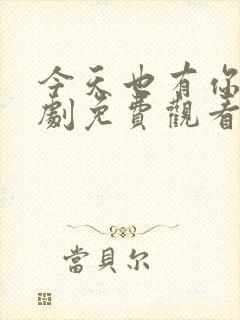 今天也有你
劇免費觀看
當貝尔